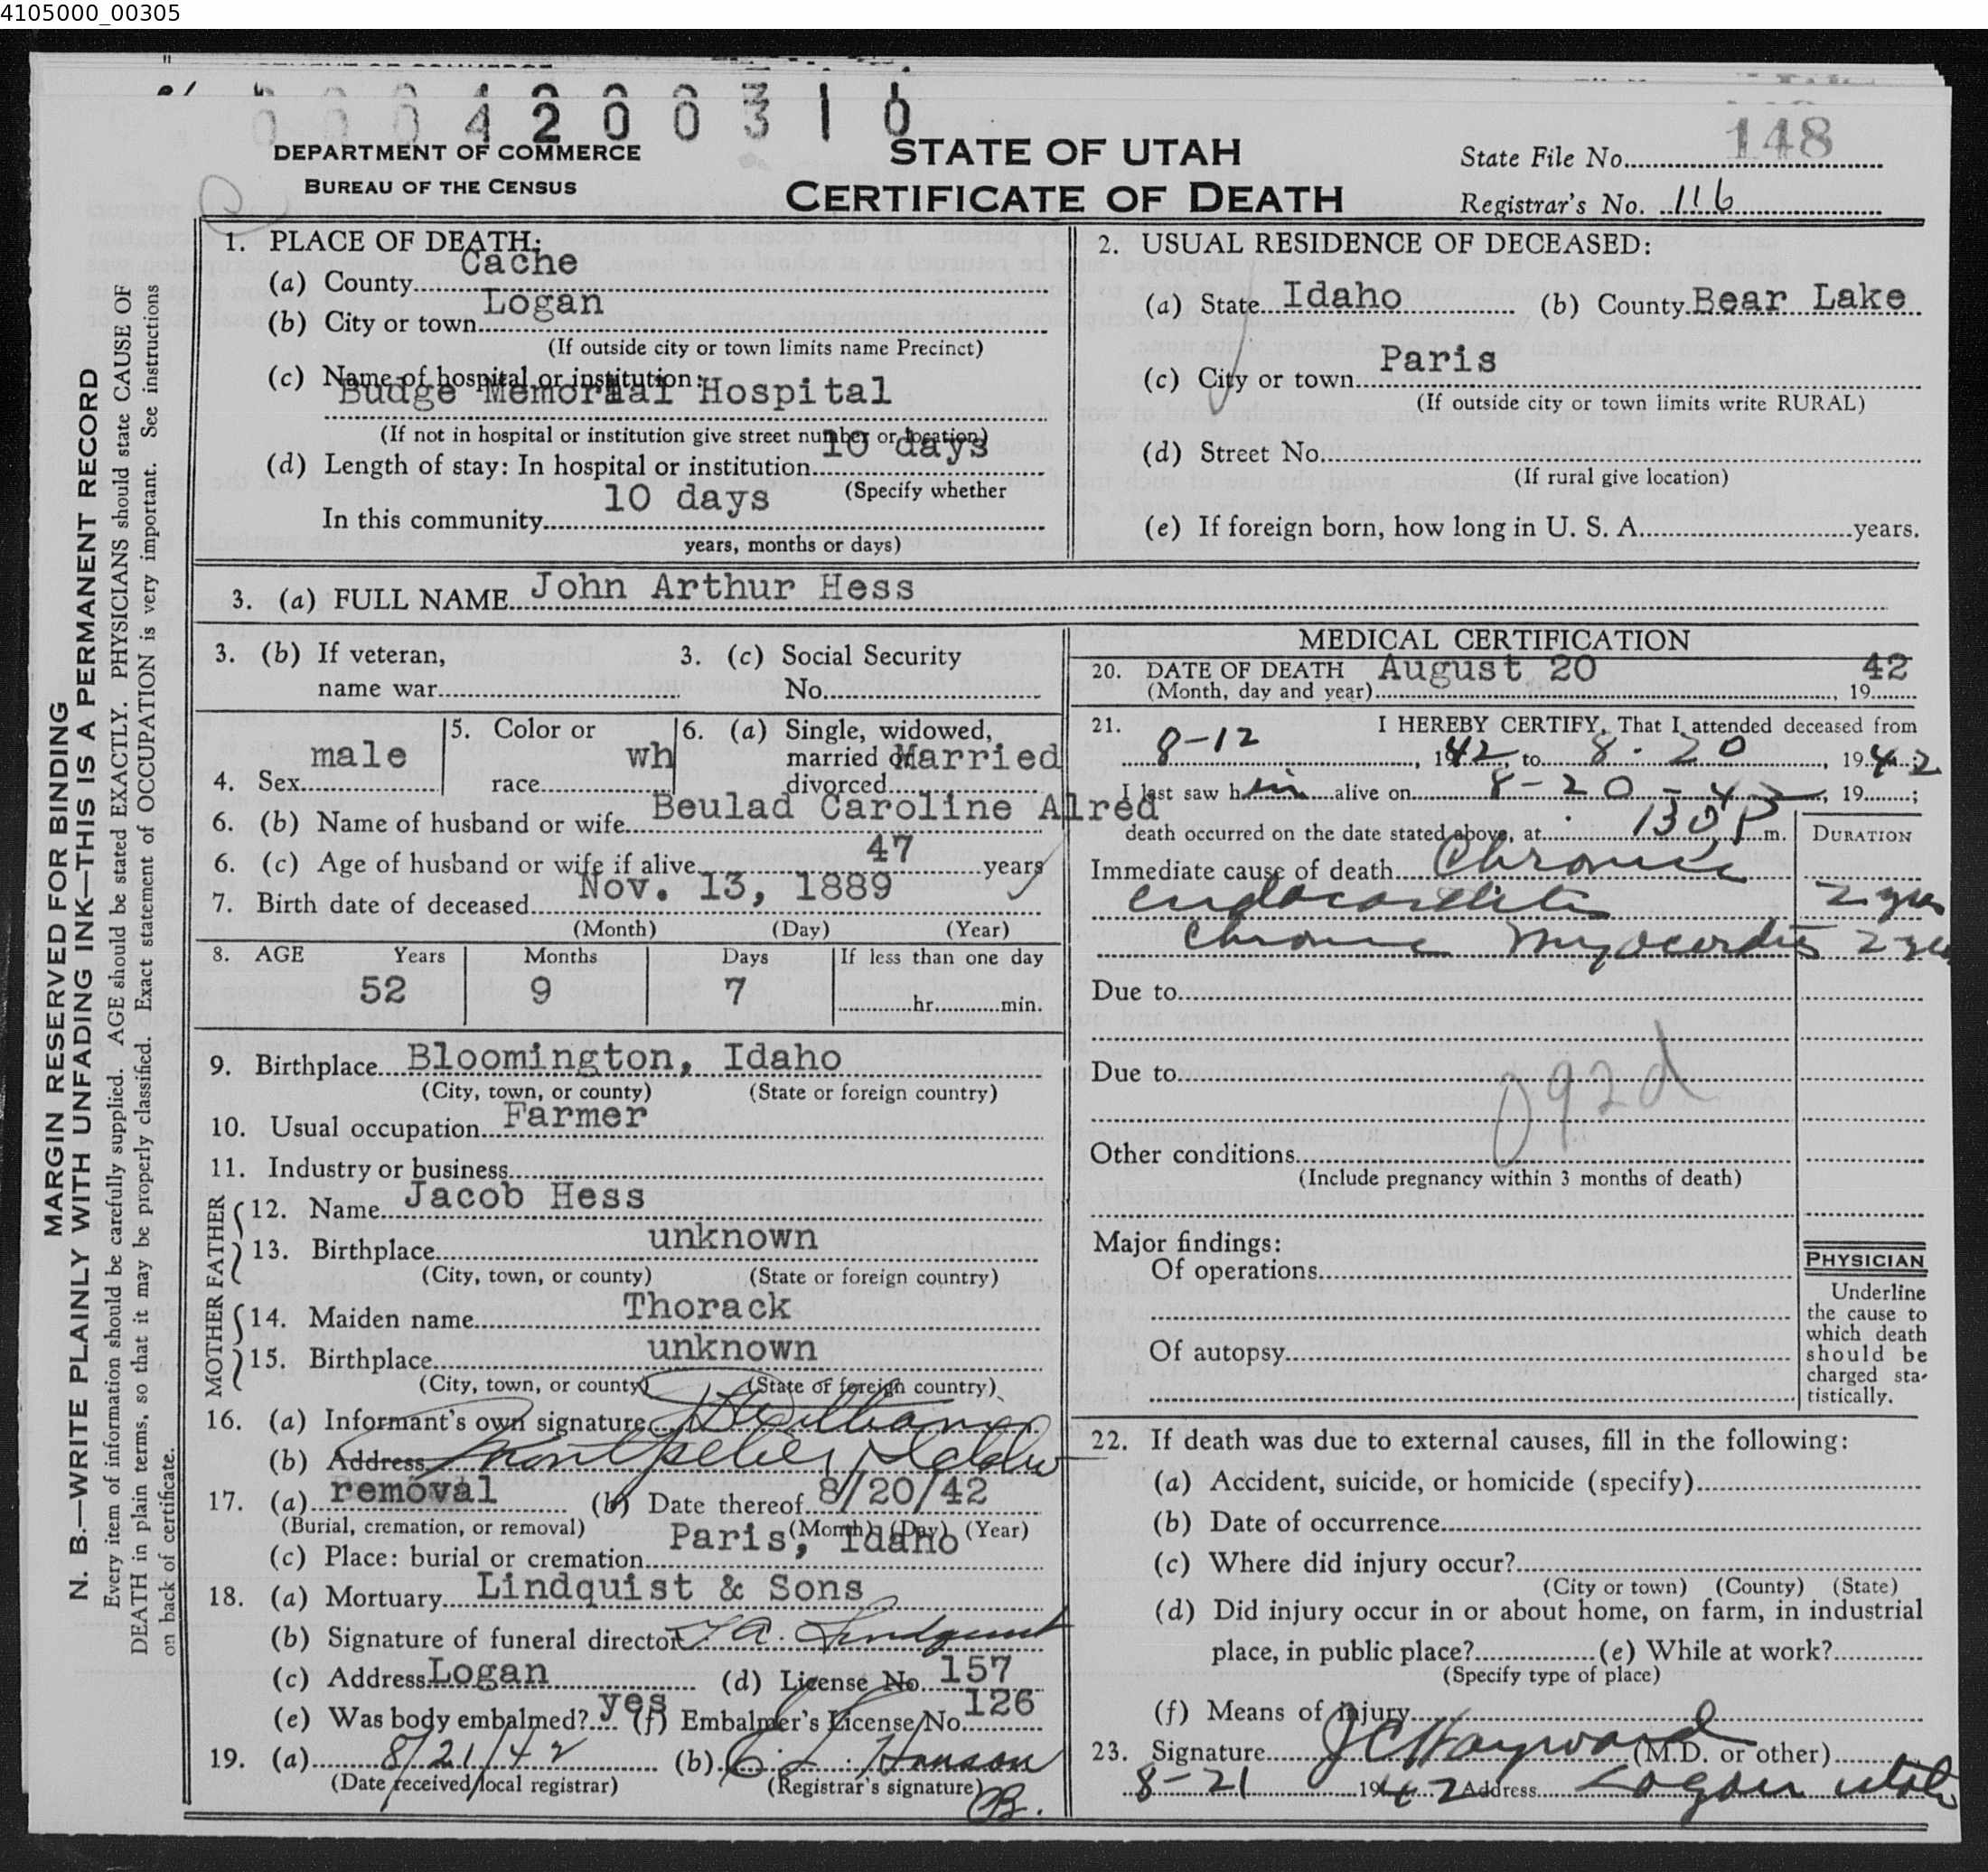 4105000_00305
0004200310
148
DEPARTMENT OF COMMERCE
BUREAU OF THE CENSUS
STATE OF UTAH
CERTIFICATE OF DEATH
State File No.
Registrar's No. 116
MARGIN RESERVED FOR BINDING
N. B.—WRITE PLAINLY WITH UNFADING INK—THIS IS A PERMANENT RECORD
Every item of information should be carefully supplied. AGE should be stated EXACTLY. PHYSICIANS should state CAUSE OF
DEATH in plain terms, so that it may be properly classified. Exact statement of OCCUPATION is very important. See instructions
on back of certificate.
1. PLACE OF DEATH:
(a) County Cache
(b) City or town Logan
(If outside city or town limits name Precinct)
(c) Name of hospital or institution:
Budge Memorial Hospital
(If not in hospital or institution give street number or location)
(d) Length of stay: In hospital or institution 10 days
(Specify whether
In this community 10 days
years, months or days)
2. USUAL RESIDENCE OF DECEASED:
(a) State Idaho (b) County Bear Lake
(c) City or town Paris
(If outside city or town limits write RURAL)
(d) Street No.
(If rural give location)
(e) If foreign born, how long in U. S. A. years.
3. (a) FULL NAME John Arthur Hess
3. (b) If veteran,
name war
3. (c) Social Security
No.
4. Sex male
5. Color or
race wh
6. (a) Single, widowed,
married or
divorced Married
6. (b) Name of husband or wife Beulad Caroline Alred
6. (c) Age of husband or wife if alive 47 years
7. Birth date of deceased Nov. 13, 1889
(Month) (Day) (Year)
8. AGE Years Months Days If less than one day
52 9 7 hr. min.
9. Birthplace Bloomington, Idaho
(City, town, or county) (State or foreign country)
10. Usual occupation Farmer
11. Industry or business
FATHER
12. Name Jacob Hess
13. Birthplace unknown
(City, town, or county) (State or foreign country)
MOTHER
14. Maiden name Thorack
15. Birthplace unknown
(City, town, or county) (State or foreign country)
16. (a) Informant's own signature Williams
(b) Address Montpelier, Idaho
17. (a) removal (b) Date thereof 8/20/42
(Burial, cremation, or removal) (Month) (Day) (Year)
(c) Place: burial or cremation Paris, Idaho
18. (a) Mortuary Lindquist & Sons
(b) Signature of funeral director Lindquist
(c) Address Logan (d) License No. 157
(e) Was body embalmed? yes (f) Embalmer's License No. 126
19. (a) 8/21/42 (b) Hanson
(Date received local registrar) (Registrar's signature)
B.
MEDICAL CERTIFICATION
20. DATE OF DEATH August 20 42
(Month, day and year) , 19
21. I HEREBY CERTIFY, That I attended deceased from
8-12, 1942, to 8-20, 1942;
I last saw him alive on 8-20-42, 19 ;
death occurred on the date stated above, at 130 P m.
DURATION
Immediate cause of death Chronic
endocarditis 2 yrs
Chronic Myocarditis 2 yrs
Due to
Due to
092d
Other conditions
(Include pregnancy within 3 months of death)
Major findings:
Of operations
Of autopsy
PHYSICIAN
Underline
the cause to
which death
should be
charged sta-
tistically.
22. If death was due to external causes, fill in the following:
(a) Accident, suicide, or homicide (specify)
(b) Date of occurrence
(c) Where did injury occur?
(City or town) (County) (State)
(d) Did injury occur in or about home, on farm, in industrial
place, in public place? (e) While at work?
(Specify type of place)
(f) Means of injury
23. Signature J C Hayward (M.D. or other)
8-21 1942 Address Logan Utah